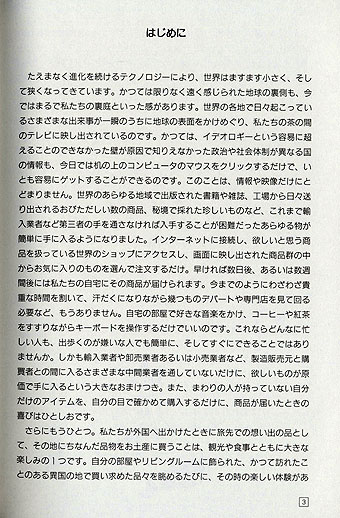 はじめに
たえまなく進化を続けるテクノロジーにより、世界はますます小さく、そし
て狭くなってきています。かつては限りなく遠く感じられた地球の裏側も、今
ではまるで私たちの裏庭といった感があります。世界の各地で日々起こってい
るさまざまな出来事が一瞬のうちに地球の表面をかけめぐり、私たちの茶の間
のテレビに映し出されているのです。かつては、イデオロギーという容易に超
えることのできなかった壁が原因で知りえなかった政治や社会体制が異なる国
の情報も、今日では机の上のコンピュータのマウスをクリックするだけで、い
とも容易にゲットすることができるのです。このことは、情報や映像だけにと
どまりません。世界のあらゆる地域で出版された書籍や雑誌、工場から日々送
り出されるおびただしい数の商品、秘境で採れた珍しいものなど、これまで輸
入業者など第三者の手を通さなければ入手することが困難だったあらゆる物が
簡単に手に入るようになりました。インターネットに接続し、欲しいと思う商
品を扱っている世界のショップにアクセスし、画面に映し出された商品群の中
からお気に入りのものを選んで注文するだけ。早ければ数日後、あるいは数週
間後には私たちの自宅にその商品が届けられます。今までのようにわざわざ貴
重な時間を割いて、汗だくになりながら幾つものデパートや専門店を見て回る
必要など、もうありません。自宅の部屋で好きな音楽をかけ、コーヒーや紅茶
をすすりながらキーボードを操作するだけでいいのです。これならどんなに忙
しい人も、出歩くのが嫌いな人でも簡単に、そしてすぐにできることではあり
ませんか。しかも輸入業者や卸売業者あるいは小売業者など、製造販売元と購
買者との間に入るさまざまな中間業者を通していないだけに、欲しいものが原
価で手に入るという大きなおまけつき。また、まわりの人が持っていない自分
だけのアイテムを、自分の目で確かめて購入するだけに、商品が届いたときの
喜びはひとしおです。
さらにもうひとつ。私たちが外国へ出かけたときに旅先での想い出の品とし
て、その地にちなんだ品物をお土産に買うことは、観光や食事とともに大きな
楽しみの1つです。自分の部屋やリビングルームに飾られた、かつて訪れたこ
とのある異国の地で買い求めた品々を眺めるたびに、その時の楽しい体験があ
3